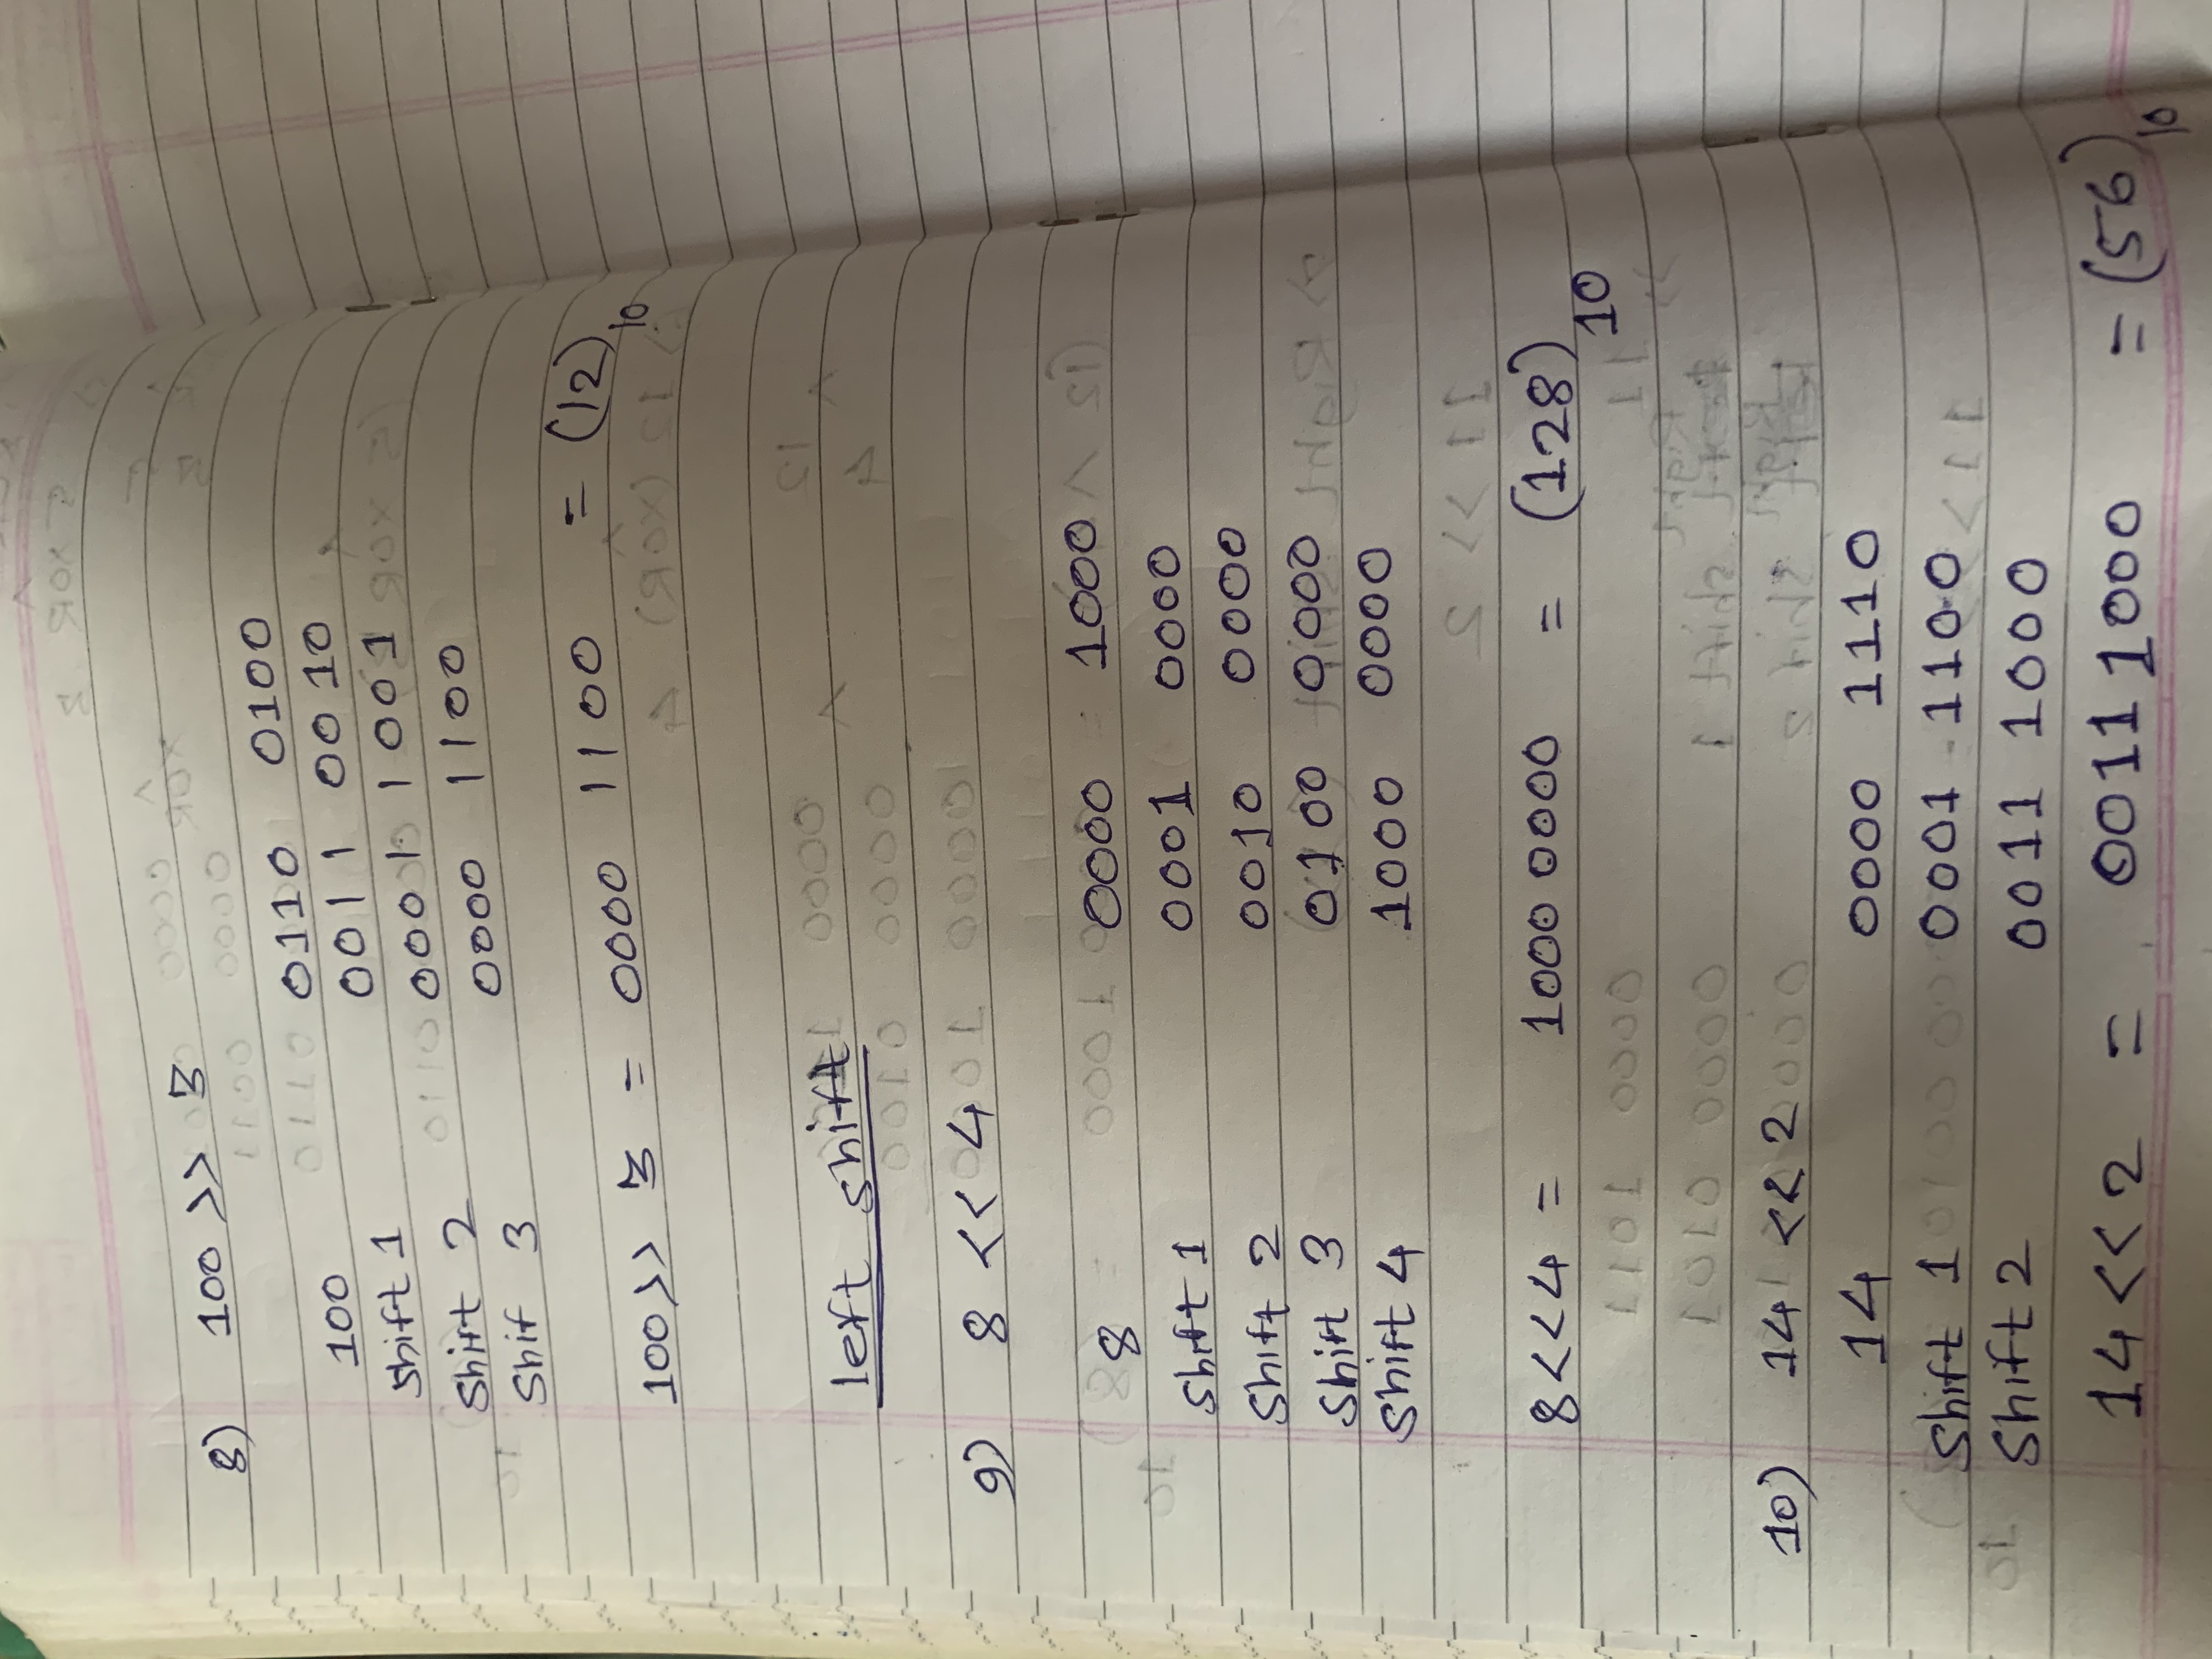 8) 100 >> 3
100 0110 0100
Shift 1 0011 0010
Shift 2 0001 1001
Shif 3 0000 1100
100 >> 3 = 0000 1100 = (12)10
left shift
9) 8 << 4
8 0000 1000
Shift 1 0001 0000
Shift 2 0010 0000
Shift 3 0100 0000
Shift 4 1000 0000
8<<4 = 1000 0000 = (128)10
10) 14 << 2
14 0000 1110
Shift 1 0001 1100
Shift 2 0011 1000
14<<2 = 0011 1000 = (56)10